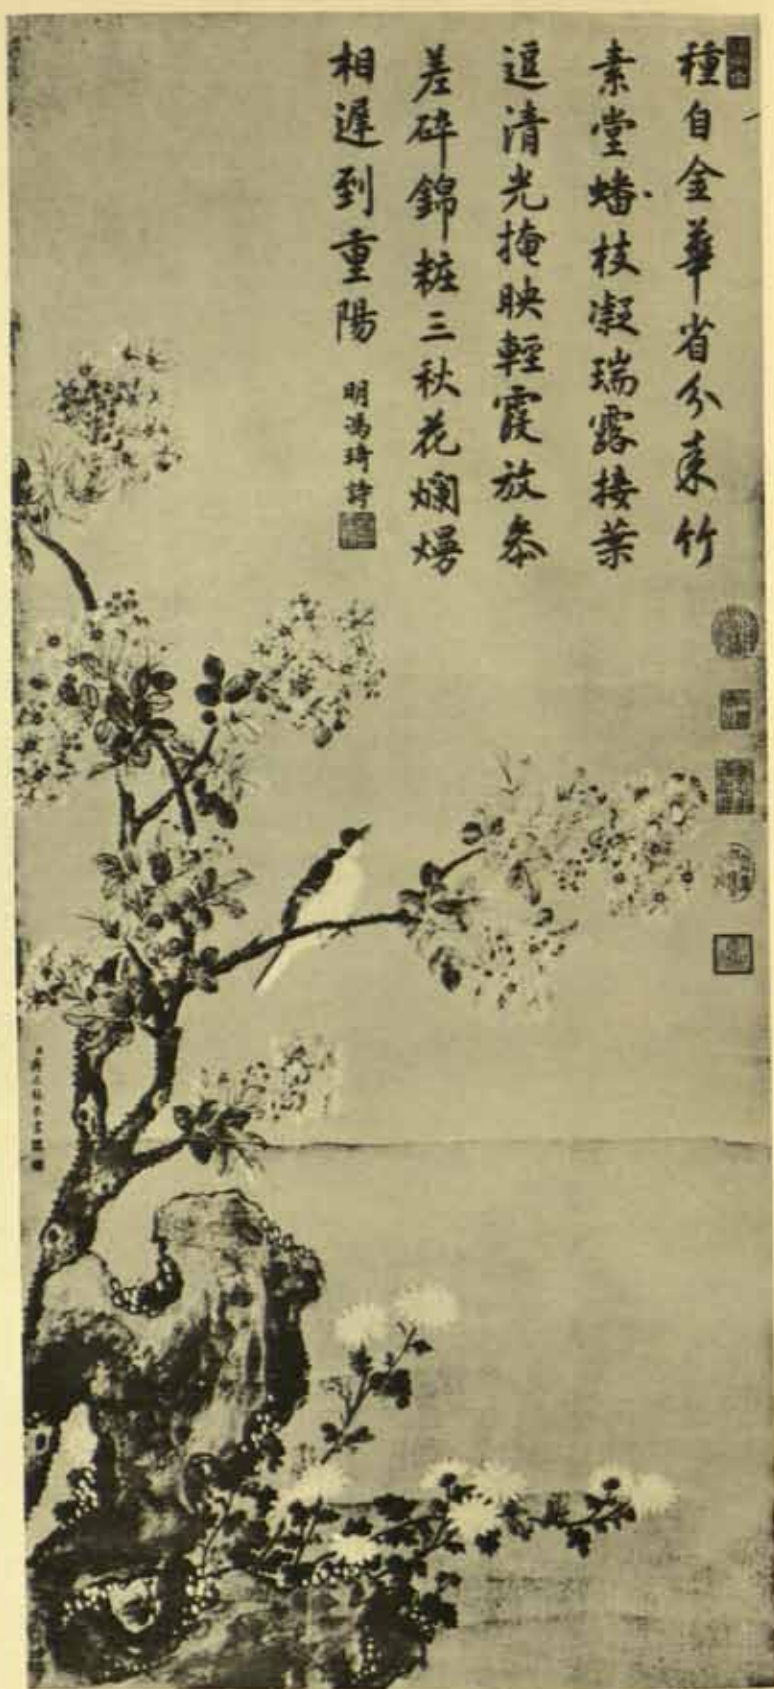 種自金華省分來竹
素堂蟠枝凝瑞露接葉
逗清光掩映輕霞放參
差碎錦粧三秋花爛熳
相遲到重陽
明馮琦詩